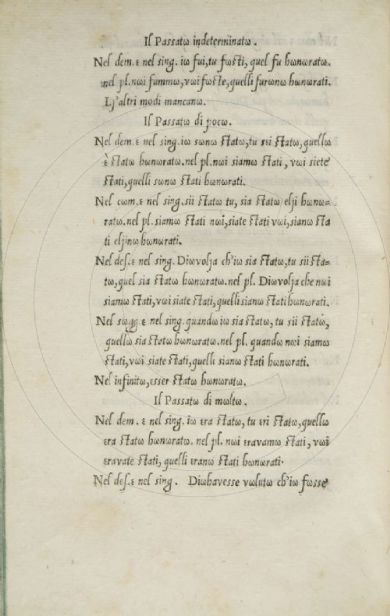 Il Passatω indeterminatω.
Nel dem. ε nel sing. iω fui, tu fωſti, quel fu hωnωratω.
nel pl. nωi fummω, vωi fωſte, quelli furωnω hωnωrati.
Lj'altri modi mancanω.
Il Passatω di pocω.
Nel dem. ε nel sing. iω sωnω ſtatω, tu sεi ſtatω, quellω
è ſtatω hωnωratω. nel pl. nωi siamω ſtati, vωi siete
ſtati, quelli sωnω ſtati hωnωrati.
Nel cωm. ε nel sing. sii ſtatω tu, sia ſtatω elji hωnω-
ratω. nel pl. siamω ſtati nωi, siate ſtati vωi, sianω ſta
ti eljnω hωnωrati.
Nel deſ. ε nel sing. Diωvolja ch'iω sia ſtatω, tu sii ſta-
tω, quel sia ſtatω hωnωratω. nel pl. Diωvolja che nωi
siamω ſtati, vωi siate ſtati, quelli sianω ſtati hωnωrati.
Nel sωgg. ε nel sing. quandω iω sia ſtatω, tu sii ſtatω,
quellω sia ſtatω hωnωratω. nel pl. quandω nωi siamω
ſtati, vωi siate ſtati, quelli sianω ſtati hωnωrati.
Nel infinitω, εsser ſtatω hωnωratω.
Il Passatω di mωltω.
Nel dem. ε nel sing. iω εra ſtatω, tu εri ſtatω, quellω
εra ſtatω hωnωratω. nel pl. nωi εravamω ſtati, vωi
εravate ſtati, quelli εranω ſtati hωnωrati.
Nel deſ. ε nel sing. Diωhavesse vωlutω ch'iω fωsse